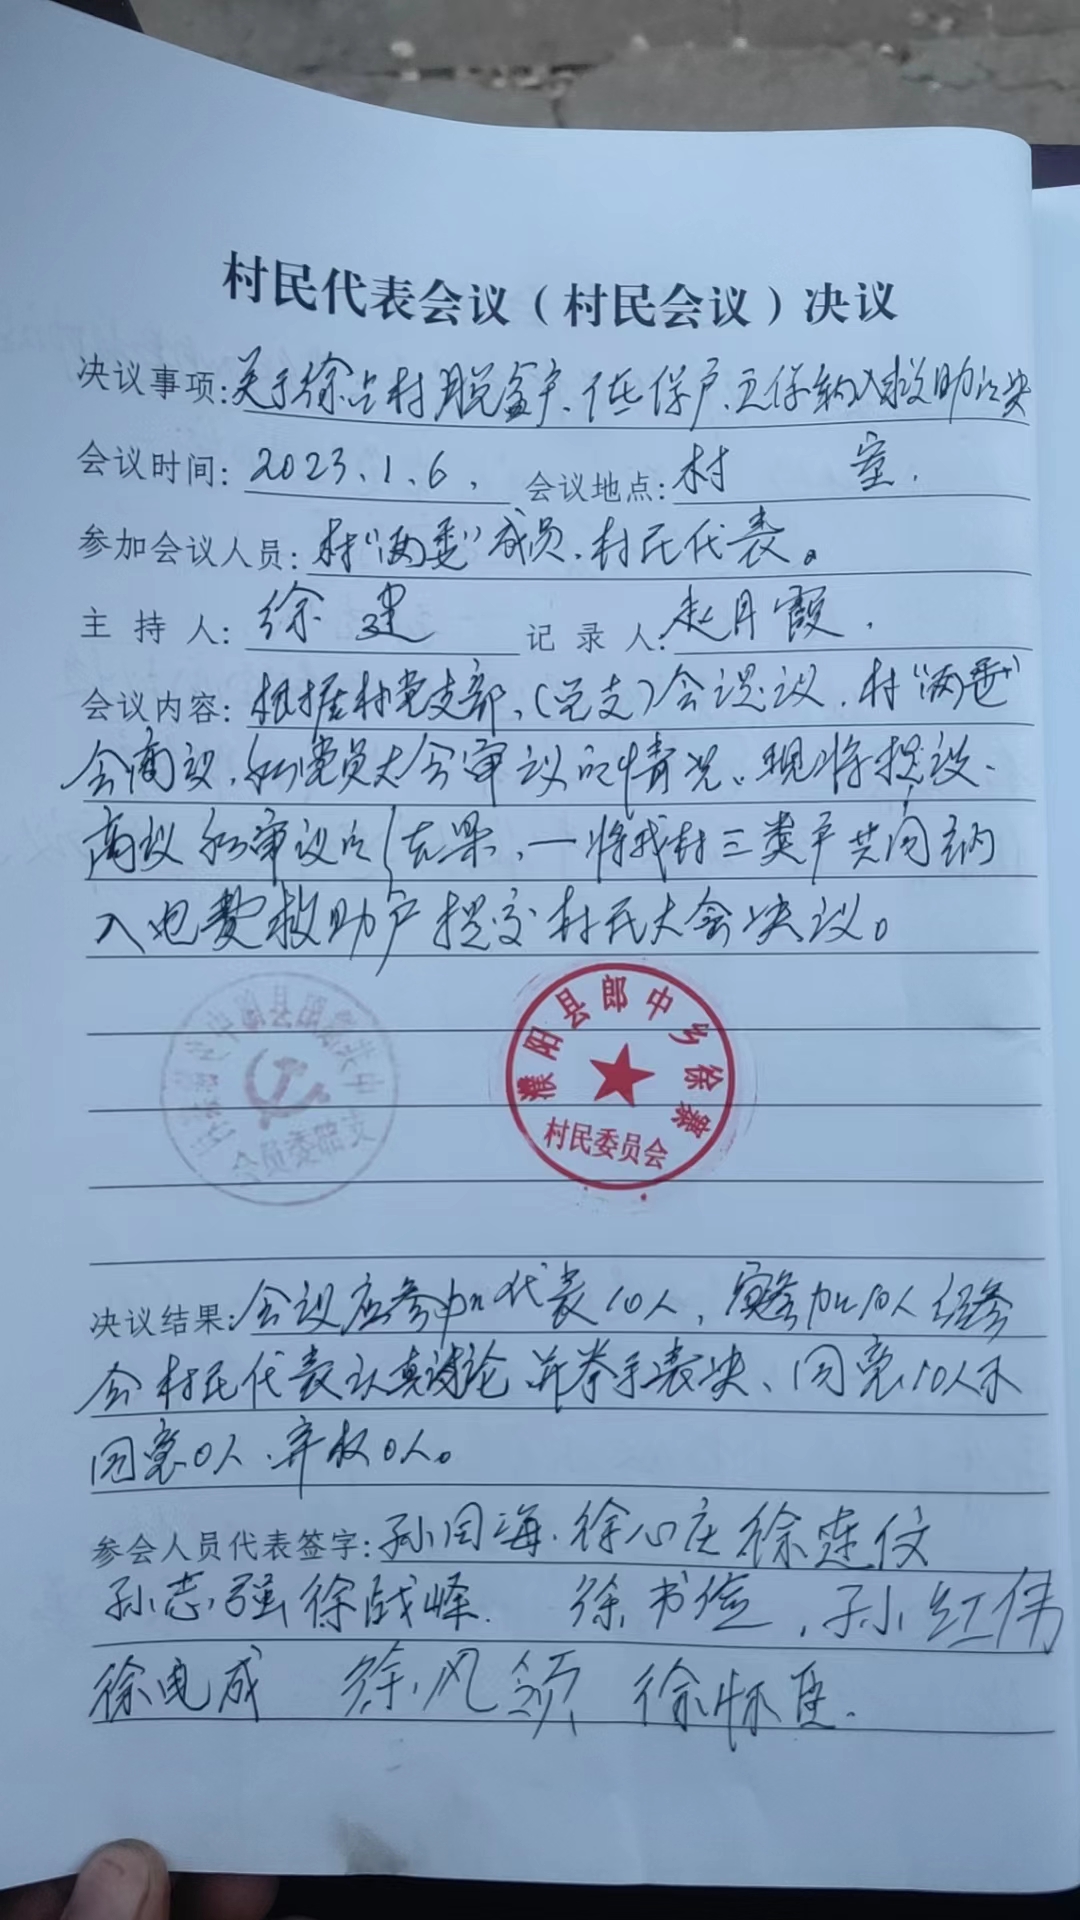 村民代表会议（村民会议）决议
决议事项：关于徐占村脱贫户、低保户、五保纳入救助的决
会议时间：2023、1、6、 会议地点：村 室.
参加会议人员：村“两委”成员、村民代表。
主持人：徐建 记录人：赵月霞.
会议内容：根据村党支部、(党支)会提议，村“两委”
会商议，和党员大会审议的情况、现将提议、
商议和审议的结果，一将我村三类户共同纳
入电费救助户提交村民大会决议。
濮阳县郎中乡徐寨
村民委员会
支部委员会
决议结果：会议应参加代表10人，实参加10人经参
会村民代表认真讨论并举手表决、同意10人不
同意0人、弃权0人。
参会人员代表签字：孙国海.徐心庄 徐连仪
孙志强 徐战峰. 徐书 ，孙红伟
徐电成 徐风领 徐怀